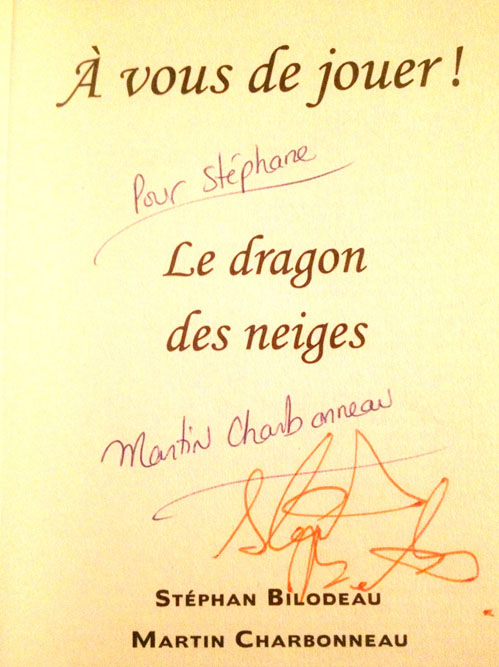 À vous de jouer !
Pour Stéphane
Le dragon
des neiges
Martin Charbonneau
STÉPHAN BILODEAU
MARTIN CHARBONNEAU